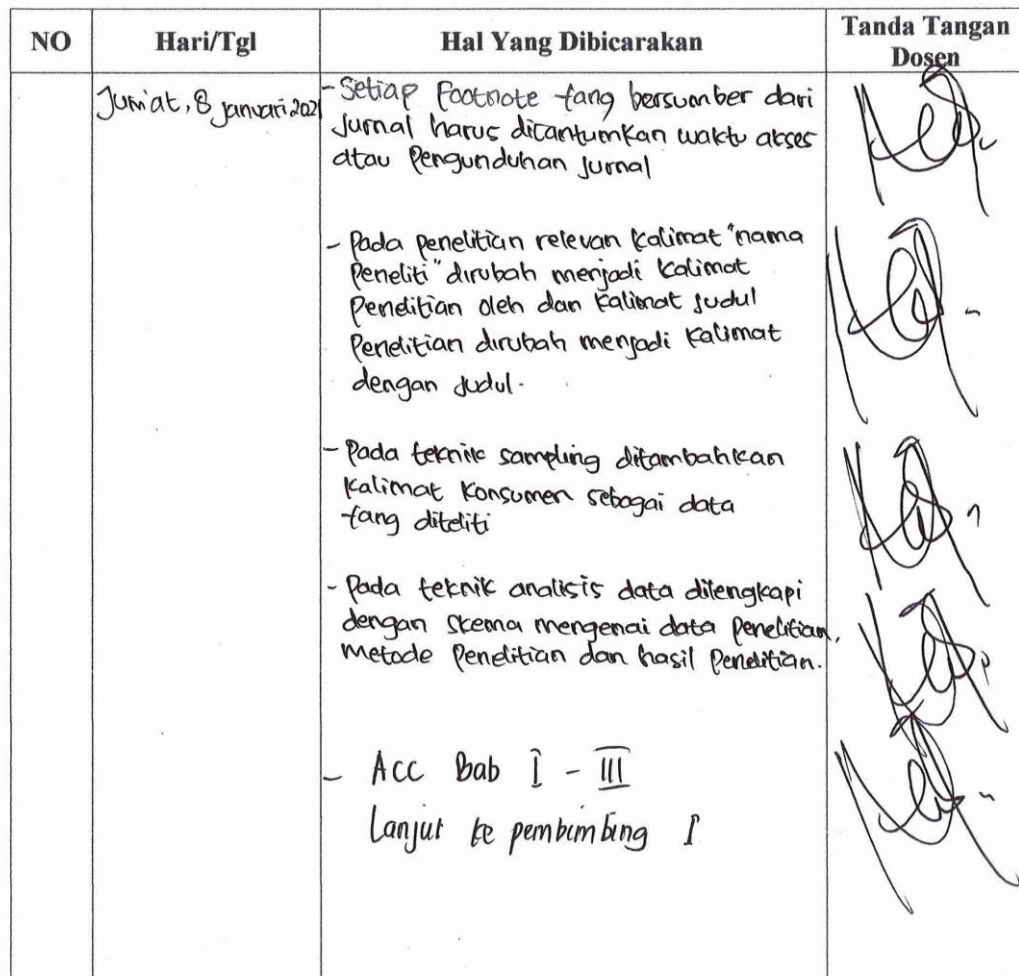 NO
Hari/Tgl
Hal Yang Dibicarakan
Tanda Tangan
Dosen
Jum'at, 8 Januari 2021
- Setiap Footnote yang bersumber dari
Jurnal harus dicantumkan waktu akses
atau Pengunduhan Jurnal
- Pada penelitian relevan kalimat "nama
Peneliti" dirubah menjadi kalimat
Penelitian oleh dan kalimat judul
Penelitian dirubah menjadi kalimat
dengan judul.
- Pada teknik sampling ditambahkan
kalimat konsumen sebagai data
yang diteliti
- Pada teknik analisis data dilengkapi
dengan skema mengenai data Penelitian,
Metode Penelitian dan hasil Penelitian.
- Acc Bab I - III
Lanjut ke pembimbing I